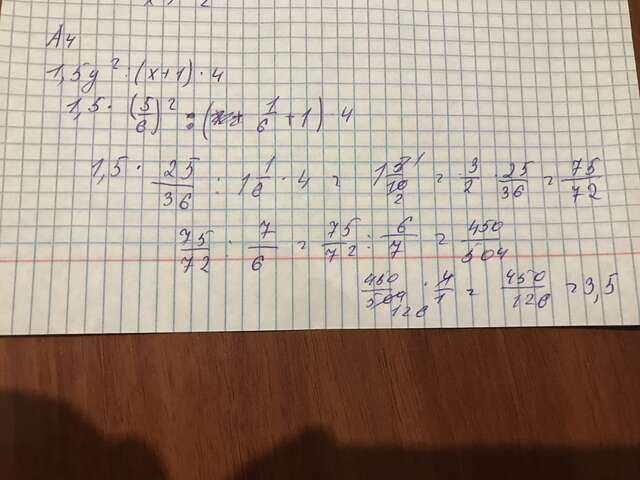 A4
1,5y² : (x+1) · 4
1,5 · (5/6)² : (1/6 + 1) 4
1,5 · 25/36 : 1 1/6 · 4 = 1 5/10 = 3/2 25/36 = 75/72
75/72 : 7/6 = 75/72 · 6/7 = 450/504
450/504 · 4/1 = 450/126 = 3,5